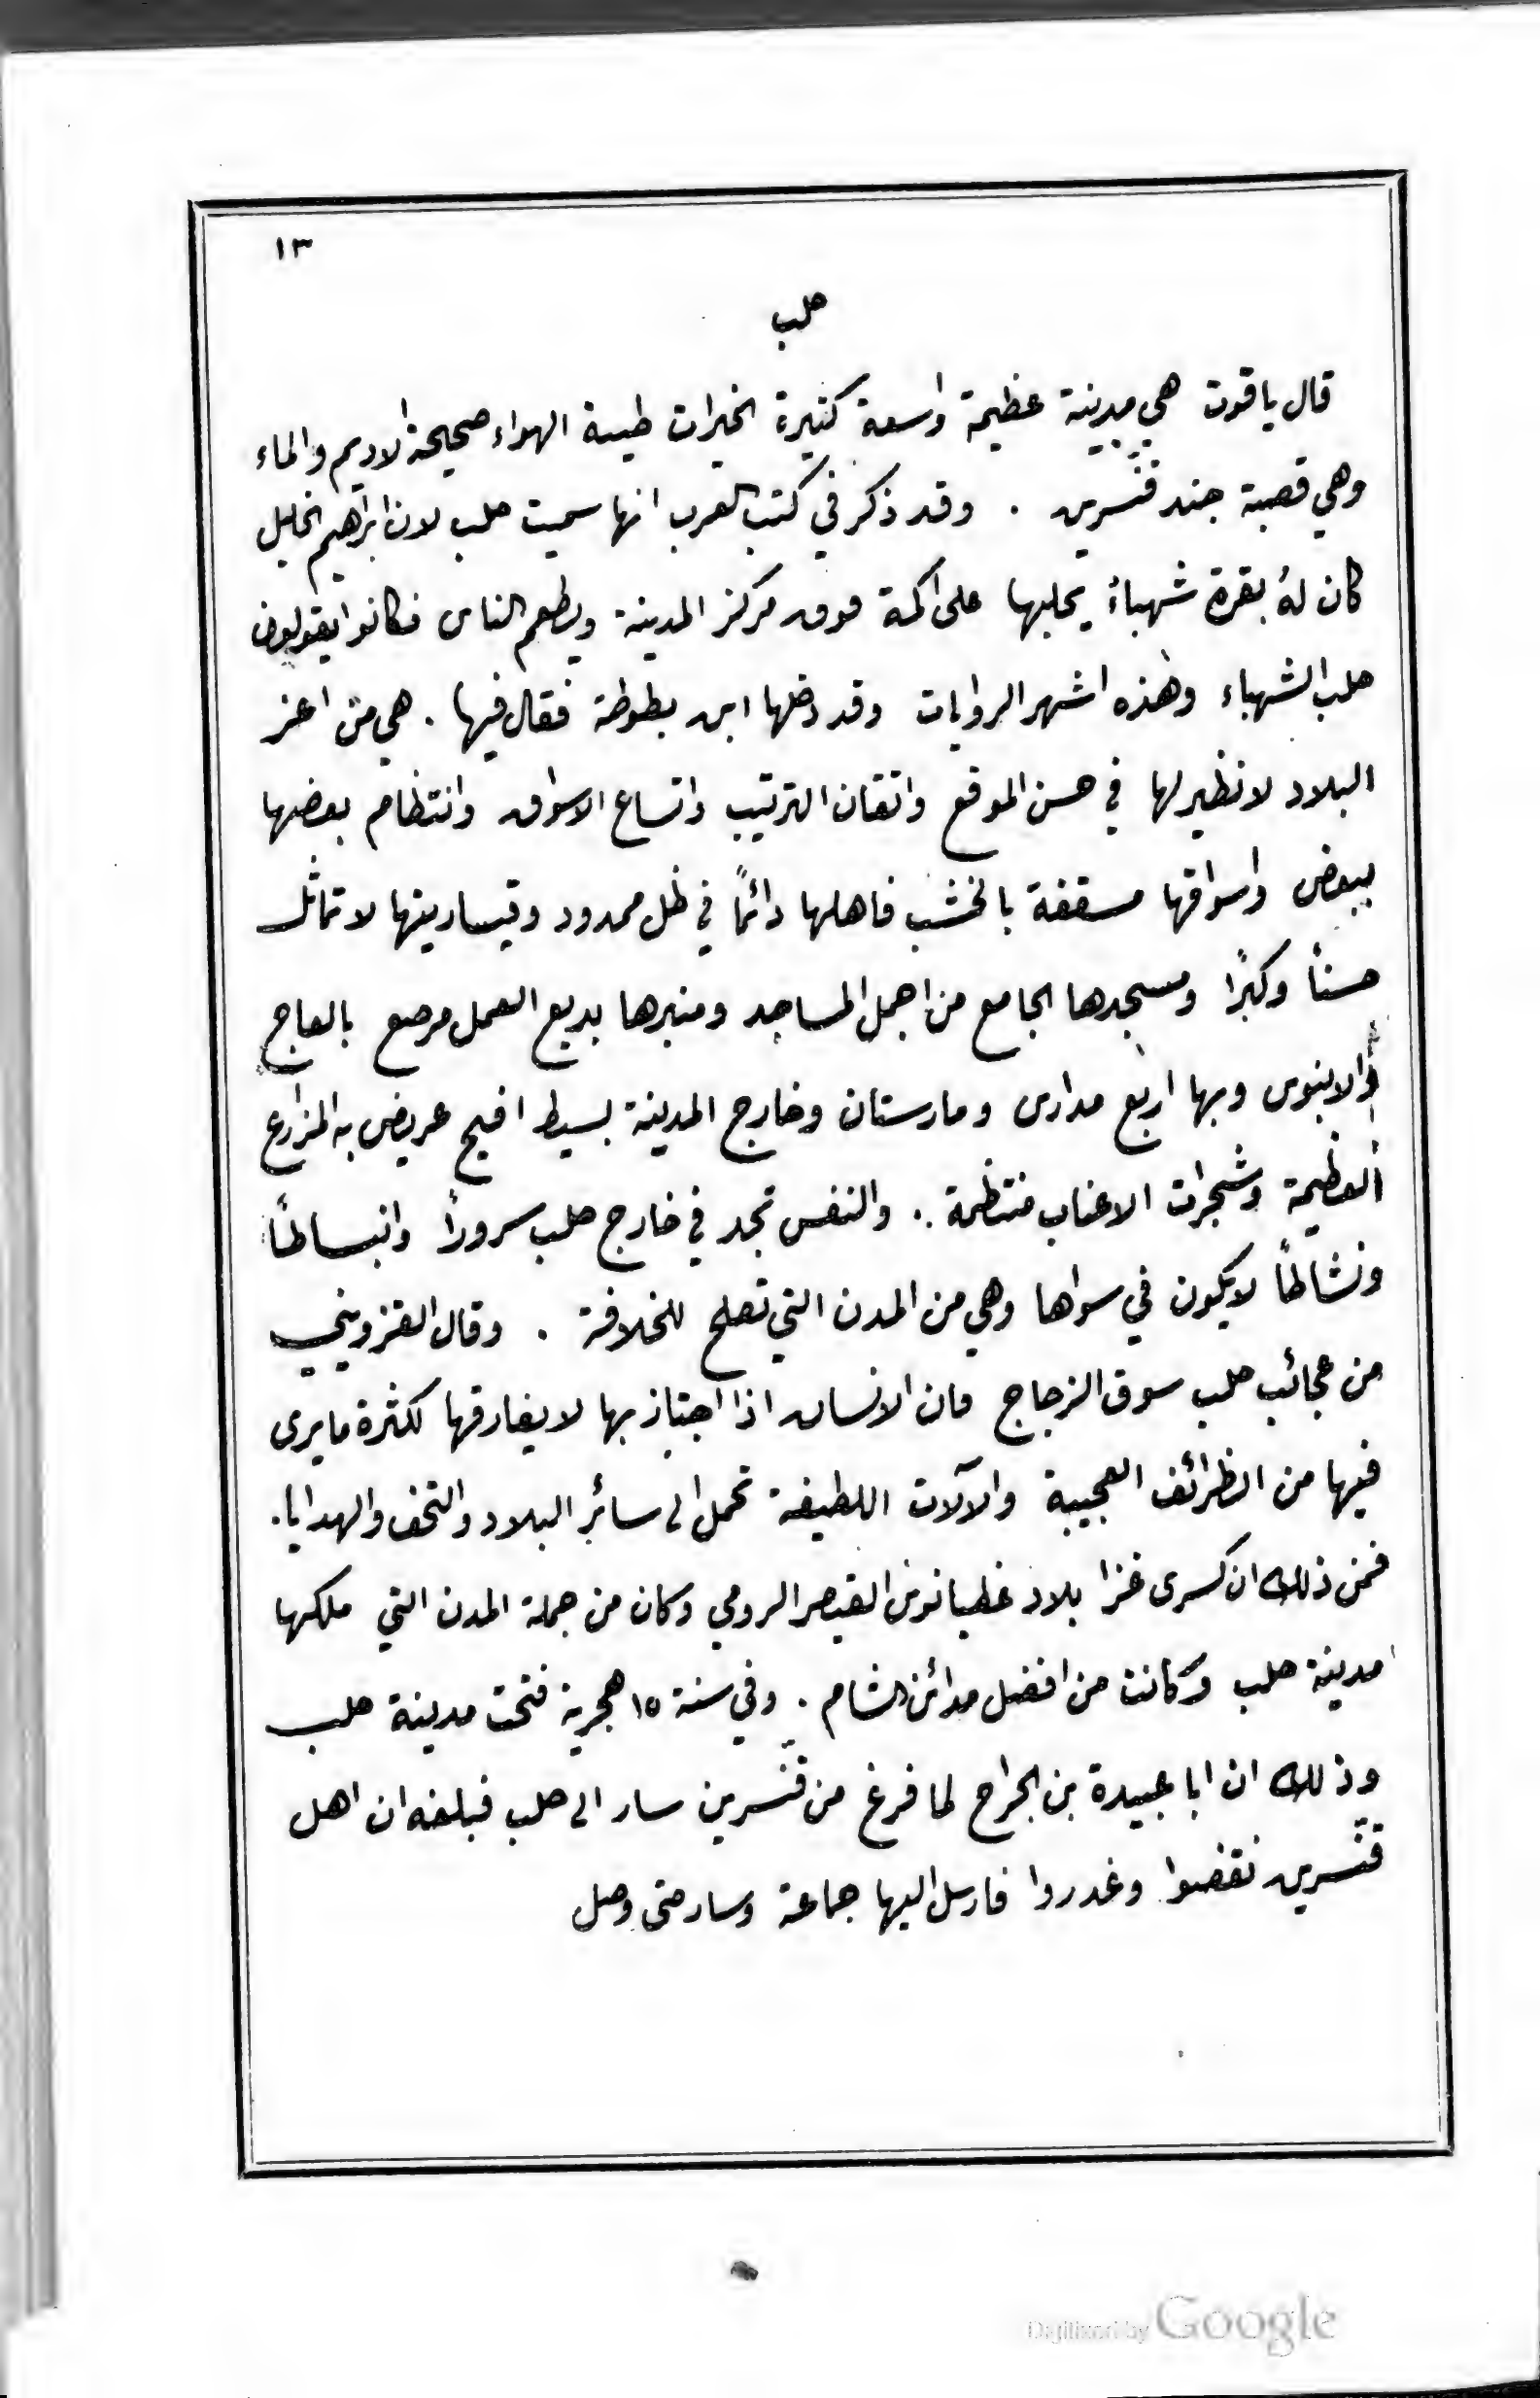 ١٣
حلب
قال ياقوت هي مدينة عظيمة واسعة كثيرة الخيرات طيبة الهواء صحيحة الاديم والماء
وهي قصبة جند قنّسرين . وقد ذكر في كتب العرب انها سميت حلب لان ابراهيم الخليل
كان لهُ بقرة شهباءُ يحلبها على اكمة فوق مركز المدينة ويطعم الناس فكانوا يقولون
حلب الشهباء وهذه اشهر الروايات وقد دخلها ابن بطوطة فقال فيها . هي من اعز
البلاد لا نظير لها في حسن الموقع واتقان الترتيب واتساع الاسواق وانتظام بعضها
ببعض واسواقها مسقفة بالخشب فاهلها دائمًا في ظل ممدود وقيساريتها لا تماثل
حسنًا وكبرًا ومسجدها الجامع من اجمل المساجد ومنبرها بديع العمل مرصع بالعاج
والابنوس وبها اربع مدارس ومارستان وخارج المدينة بسيط افيح عريض به المزارع
العظيمة وشجرات الاعناب منتظمة . والنفس تجد في خارج حلب سرورًا وانبساطًا
ونشاطًا لا يكون في سواها وهي من المدن التي تصلح للخلافة . وقال القزويني
من عجائب حلب سوق الزجاج فان الانسان اذا اجتاز بها لا يفارقها لكثرة ما يرى
فيها من الظرائف العجيبة والآلات اللطيفة تحمل الى سائر البلاد والتحف والهدايا .
فمن ذلك ان كسرى غزا بلاد غطيانوس القيصر الرومي وكان من جملة المدن التي ملكها
مدينة حلب وكانت من افضل مدائن الشام . وفي سنة ١٥ هجرية فتحت مدينة حلب
وذلك ان ابا عبيدة بن الجراح لما فرغ من قنّسرين سار الى حلب فبلغه ان اهل
قنّسرين نقضوا وغدروا فارسل اليها جماعة وسار حتى وصل
Digitized by Google